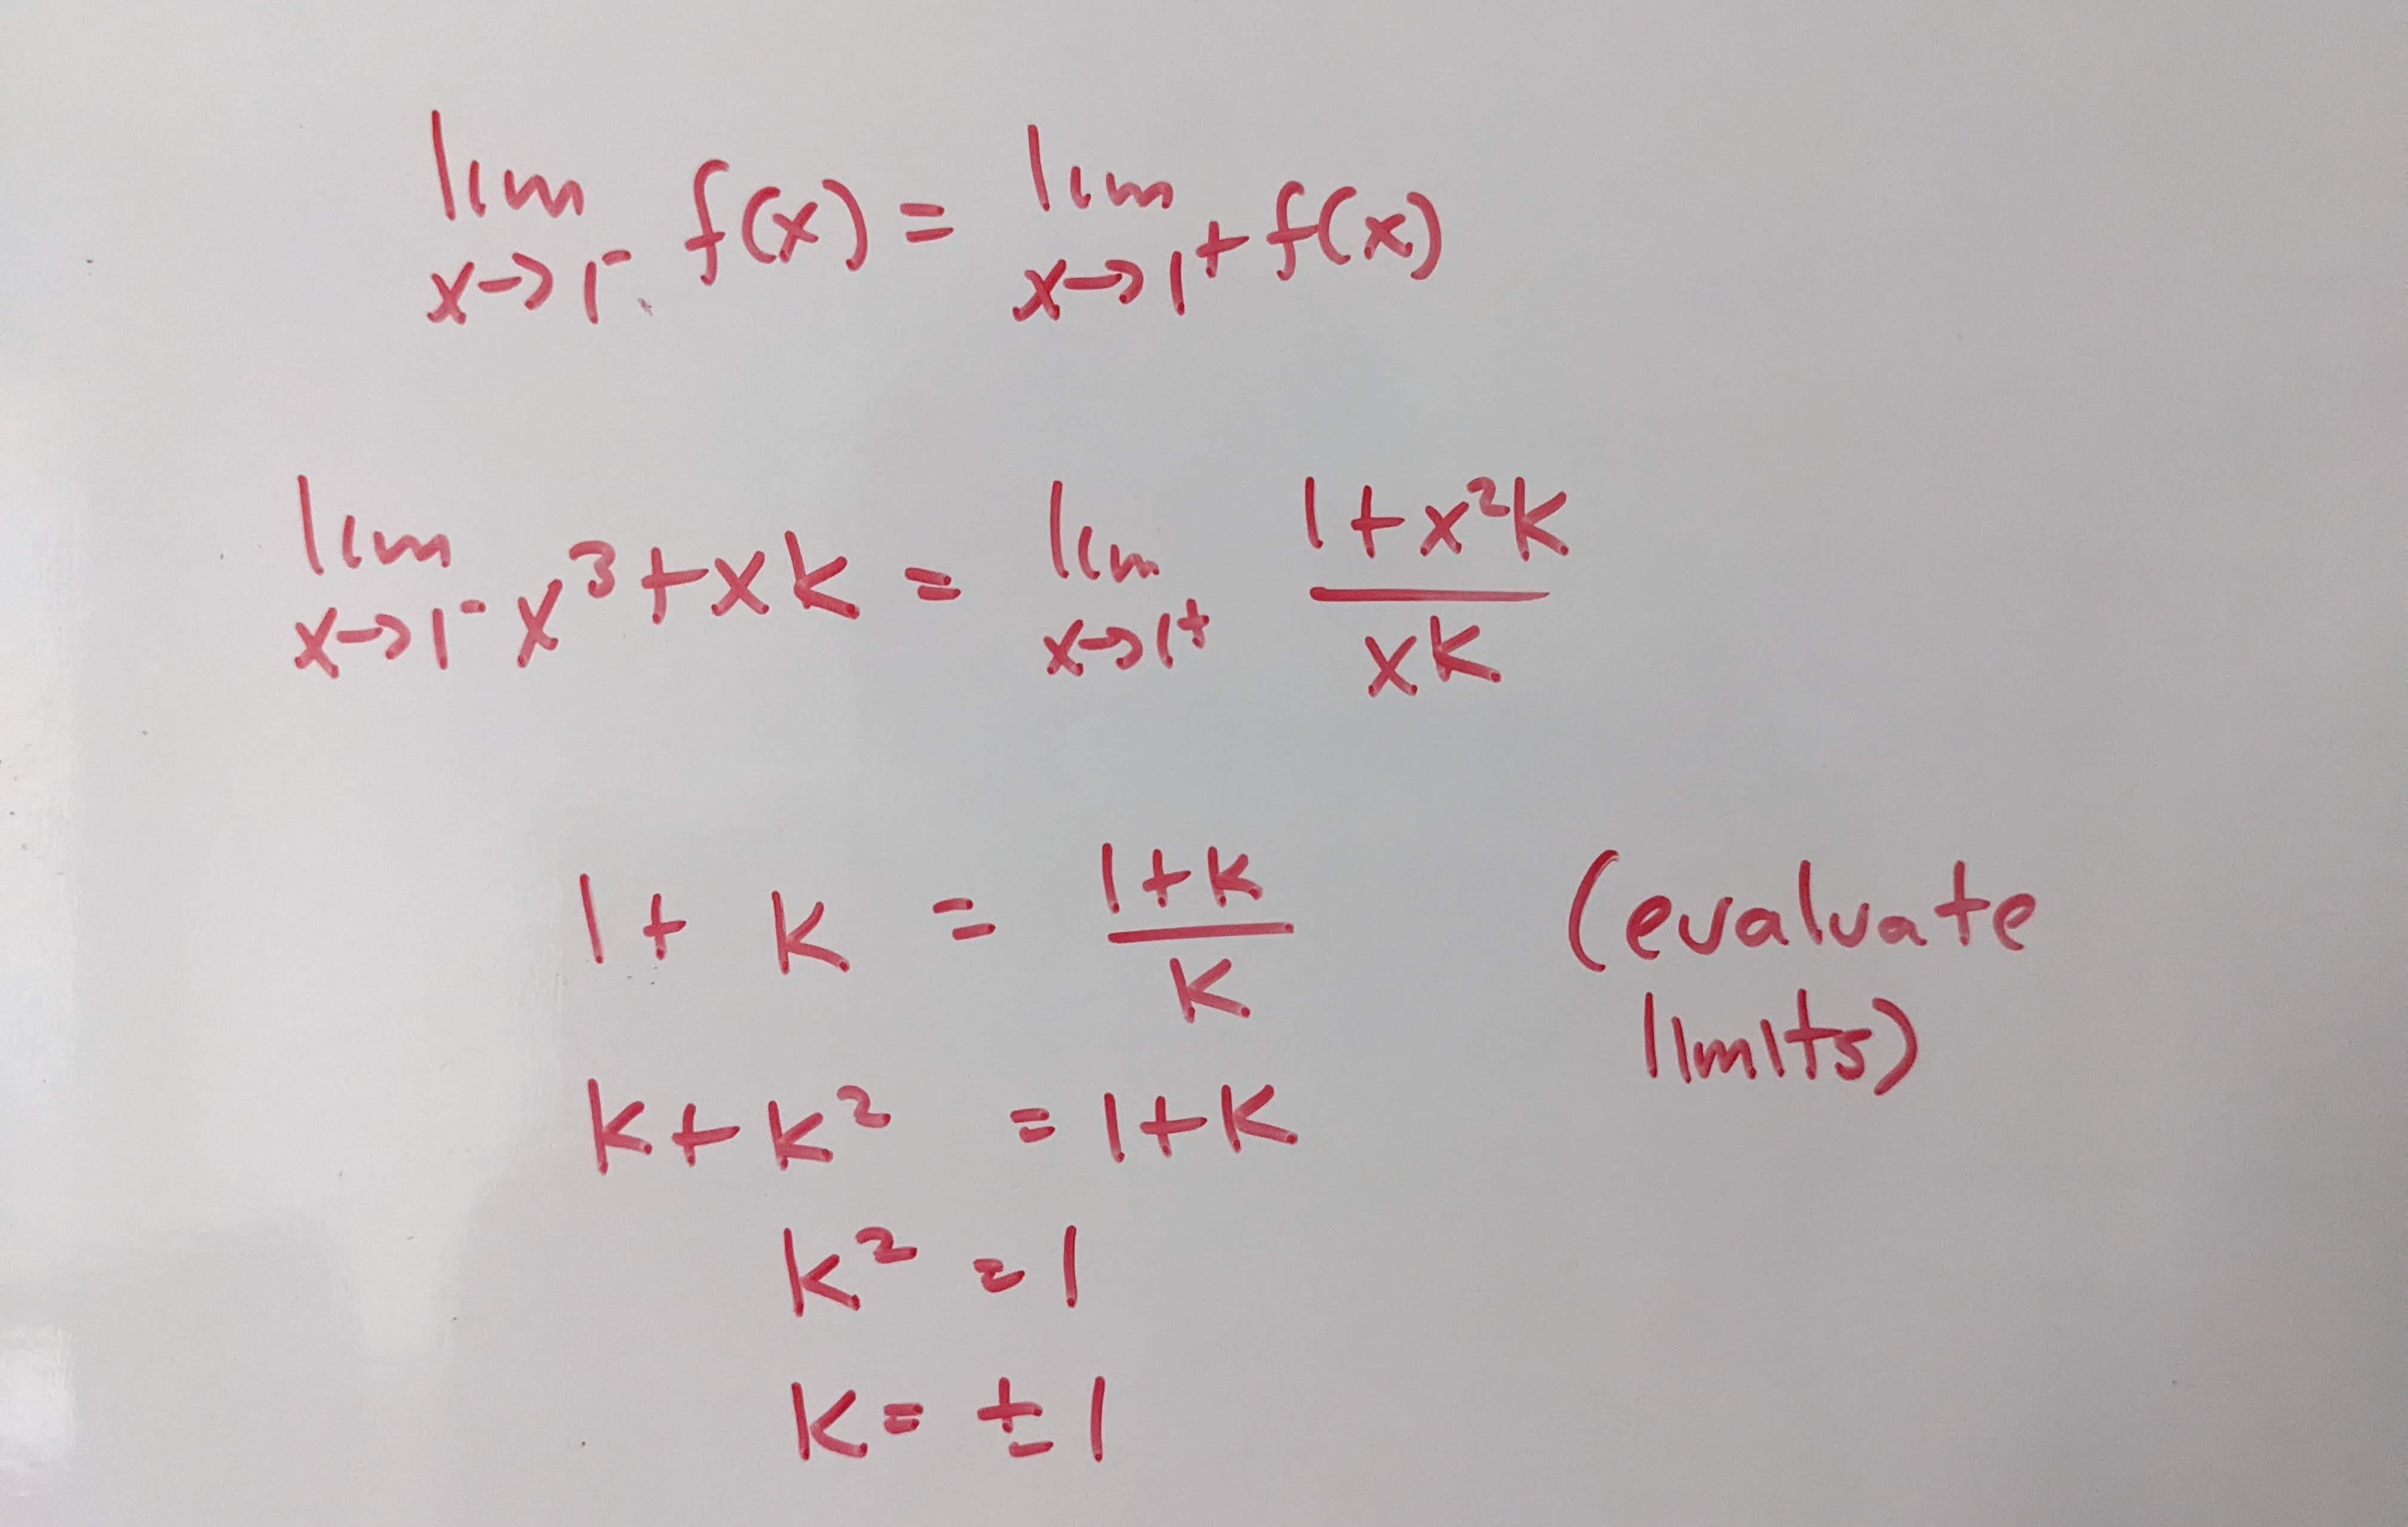 lim x→1⁻ f(x) = lim x→1⁺ f(x)
lim x→1⁻ x³+xk = lim x→1⁺ (1+x²k)/(xk)
1+k = (1+k)/k (evaluate limits)
k+k² = 1+k
k² = 1
k = ±1